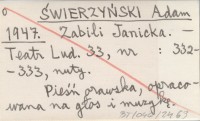 o ŚWIERZYŃSKI Adam
1947. Zabili Janicka. –
Teatr Lud. 33, nr : 332-
-333, nuty.
Pieśń orawska, opraco-
wana na głos i muzykę.